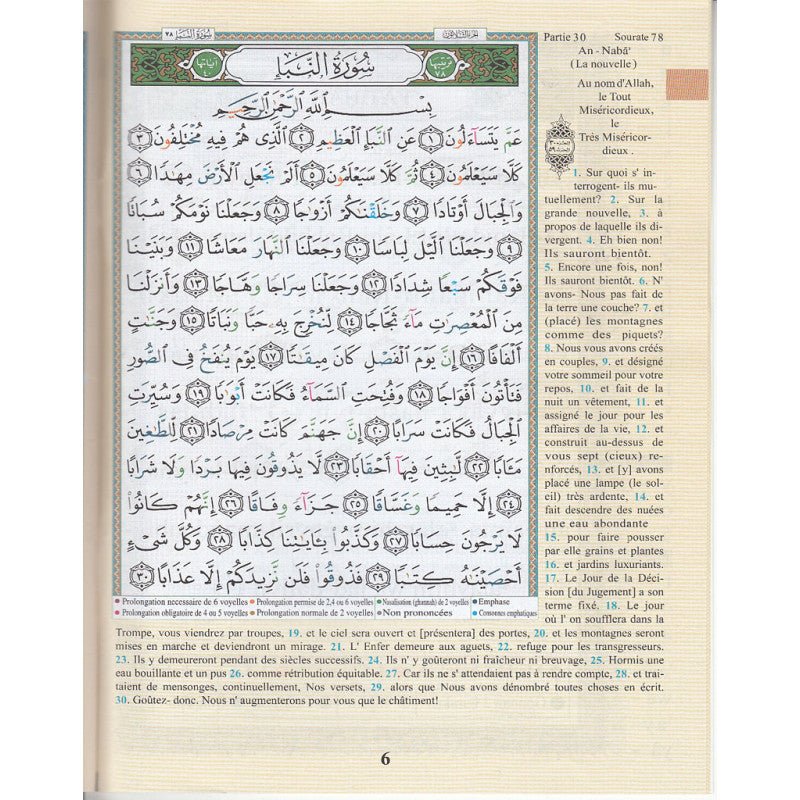 سُورَةُ النَّبَإِ ٧٨
الجزء الثلاثون
Partie 30 Sourate 78
آيَاتُهَا ٤٠
سُورَةُ النَّبَإِ
تَرْتِيبُهَا ٧٨
بِسْمِ ٱللَّهِ ٱلرَّحْمَٰنِ ٱلرَّحِيمِ
عَمَّ يَتَسَآءَلُونَ ١ عَنِ ٱلنَّبَإِ ٱلْعَظِيمِ ٢ ٱلَّذِى هُمْ فِيهِ مُخْتَلِفُونَ ٣
كَلَّا سَيَعْلَمُونَ ٤ ثُمَّ كَلَّا سَيَعْلَمُونَ ٥ أَلَمْ نَجْعَلِ ٱلْأَرْضَ مِهَٰدًا ٦
وَٱلْجِبَالَ أَوْتَادًا ٧ وَخَلَقْنَٰكُمْ أَزْوَٰجًا ٨ وَجَعَلْنَا نَوْمَكُمْ سُبَاتًا
٩ وَجَعَلْنَا ٱلَّيْلَ لِبَاسًا ١٠ وَجَعَلْنَا ٱلنَّهَارَ مَعَاشًا ١١ وَبَنَيْنَا
فَوْقَكُمْ سَبْعًا شِدَادًا ١٢ وَجَعَلْنَا سِرَاجًا وَهَّاجًا ١٣ وَأَنزَلْنَا
مِنَ ٱلْمُعْصِرَٰتِ مَآءً ثَجَّاجًا ١٤ لِّنُخْرِجَ بِهِۦ حَبًّا وَنَبَاتًا ١٥ وَجَنَّٰتٍ
أَلْفَافًا ١٦ إِنَّ يَوْمَ ٱلْفَصْلِ كَانَ مِيقَٰتًا ١٧ يَوْمَ يُنفَخُ فِى ٱلصُّورِ
فَتَأْتُونَ أَفْوَاجًا ١٨ وَفُتِحَتِ ٱلسَّمَآءُ فَكَانَتْ أَبْوَٰبًا ١٩ وَسُيِّرَتِ
ٱلْجِبَالُ فَكَانَتْ سَرَابًا ٢٠ إِنَّ جَهَنَّمَ كَانَتْ مِرْصَادًا ٢١ لِّلطَّٰغِينَ
مَـَٔابًا ٢٢ لَّٰبِثِينَ فِيهَآ أَحْقَابًا ٢٣ لَّا يَذُوقُونَ فِيهَا بَرْدًا وَلَا شَرَابًا
٢٤ إِلَّا حَمِيمًا وَغَسَّاقًا ٢٥ جَزَآءً وِفَاقًا ٢٦ إِنَّهُمْ كَانُوا۟
لَا يَرْجُونَ حِسَابًا ٢٧ وَكَذَّبُوا۟ بِـَٔايَٰتِنَا كِذَّابًا ٢٨ وَكُلَّ شَىْءٍ
أَحْصَيْنَٰهُ كِتَٰبًا ٢٩ فَذُوقُوا۟ فَلَن نَّزِيدَكُمْ إِلَّا عَذَابًا ٣٠
Prolongation necessaire de 6 voyelles Prolongation permise de 2,4 ou 6 voyelles Nasalisation (ghunnah) de 2 voyelles Emphase
Prolongation obligatoire de 4 ou 5 voyelles Prolongation normale de 2 voyelles Non prononcées Consonnes emphatiques
An - Nabâ'
(La nouvelle)
Au nom d'Allah,
le Tout
Miséricordieux,
le
Très Miséricor-
dieux .
1. Sur quoi s' in-
terrogent- ils mu-
tuellement? 2. Sur la
grande nouvelle, 3. à
propos de laquelle ils di-
vergent. 4. Eh bien non!
Ils sauront bientôt.
5. Encore une fois, non!
Ils sauront bientôt. 6. N'
avons- Nous pas fait de
la terre une couche? 7. et
(placé) les montagnes
comme des piquets?
8. Nous vous avons créés
en couples, 9. et désigné
votre sommeil pour votre
repos, 10. et fait de la
nuit un vêtement, 11. et
assigné le jour pour les
affaires de la vie, 12. et
construit au-dessus de
vous sept (cieux) ren-
forcés, 13. et [y] avons
placé une lampe (le so-
leil) très ardente, 14. et
fait descendre des nuées
une eau abondante
15. pour faire pousser
par elle grains et plantes
16. et jardins luxuriants.
17. Le Jour de la Déci-
sion [du Jugement] a son
terme fixé. 18. Le jour
où l' on soufflera dans la
Trompe, vous viendrez par troupes, 19. et le ciel sera ouvert et [présentera] des portes, 20. et les montagnes seront
mises en marche et deviendront un mirage. 21. L' Enfer demeure aux aguets, 22. refuge pour les transgresseurs.
23. Ils y demeureront pendant des siècles successifs. 24. Ils n' y goûteront ni fraîcheur ni breuvage, 25. Hormis une
eau bouillante et un pus 26. comme rétribution équitable. 27. Car ils ne s' attendaient pas à rendre compte, 28. et trai-
taient de mensonges, continuellement, Nos versets, 29. alors que Nous avons dénombré toutes choses en écrit.
30. Goûtez- donc. Nous n' augmenterons pour vous que le châtiment!
6